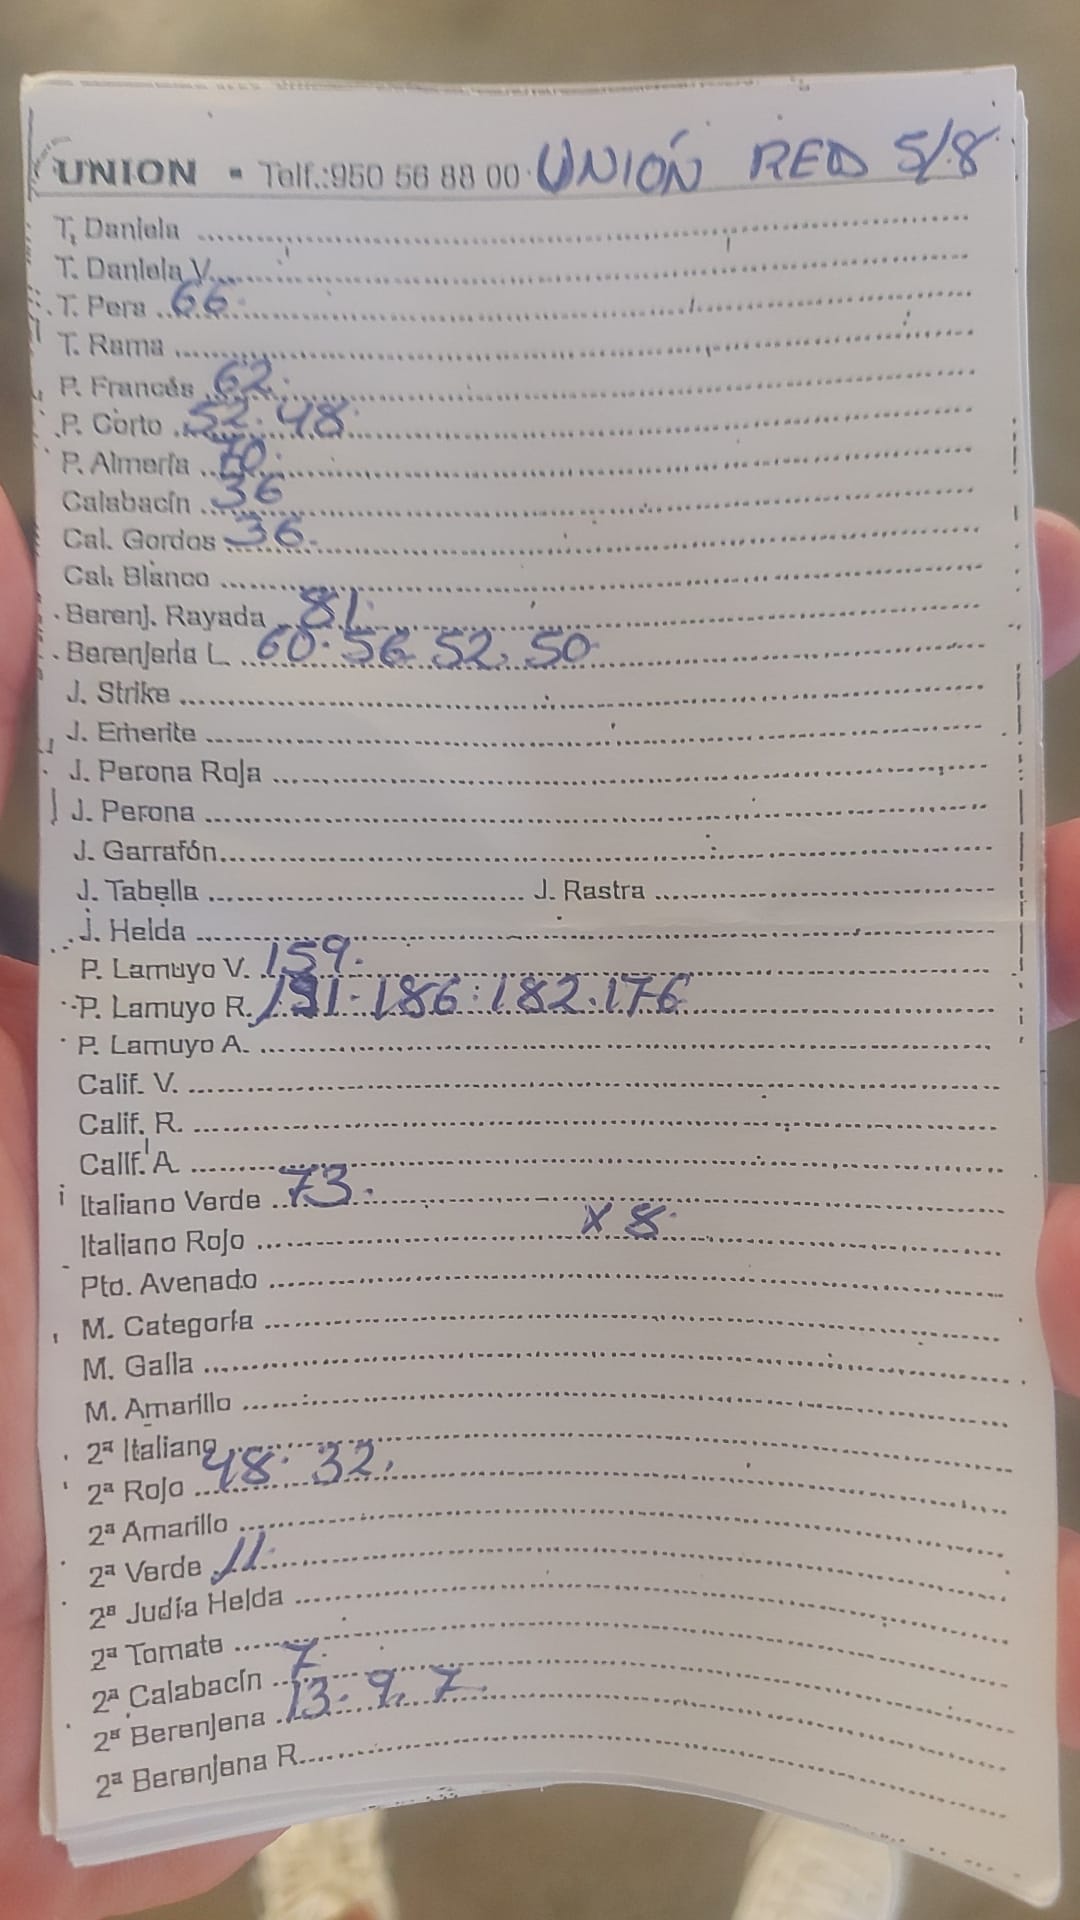 UNION - Telf.:950 56 88 00 UNIÓN RED 5/8
T. Daniela
T. Daniela V.
T. Pera 66
T. Rama
P. Francés 62
P. Corto 52. 48
P. Almería 70
Calabacín 36
Cal. Gordos 36
Cal. Blanco
Berenj. Rayada 81
Berenjena L. 60. 56 52. 50
J. Strike
J. Emerite
J. Perona Roja
J. Perona
J. Garrafón
J. Tabella J. Rastra
J. Helda
P. Lamuyo V. 159
P. Lamuyo R. 191. 186. 182. 176
P. Lamuyo A.
Calif. V.
Calif. R.
Calif. A
Italiano Verde 73
Italiano Rojo x 8
Pto. Avenado
M. Categoría
M. Galla
M. Amarillo
2ª Italiano
2ª Rojo 48. 32
2ª Amarillo
2ª Verde 11
2ª Judía Helda
2ª Tomate
2ª Calabacín 7
2ª Berenjena 13. 9, 7
2ª Berenjena R.